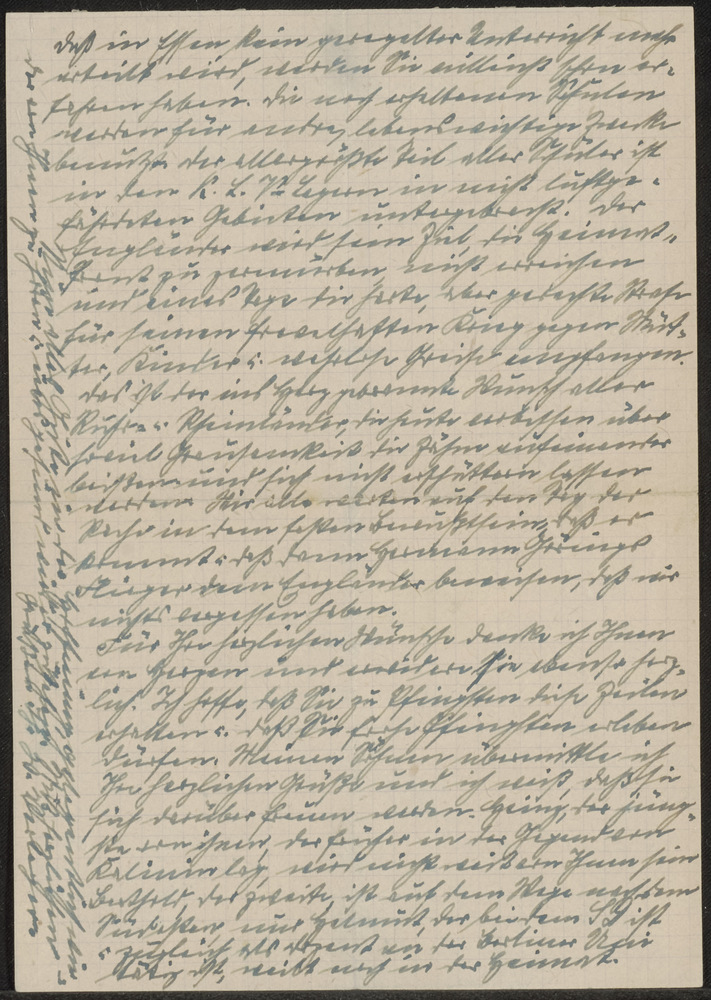 daß in Essen kein geregelter Unterricht mehr
erteilt wird, werden Sie vielleicht schon er-
fahren haben. Die noch erhaltenen Schulen
werden für andre, lebenswichtige Zwecke
benutzt. Der allergrößte Teil aller Schüler ist
in den K. L. V. Lagern in nicht luftge-
fährdeten Gebieten untergebracht. Der
Engländer wird sein Ziel, die Heimat-
front zu zermürben, nicht erreichen
und eines Tags die harte, aber gerechte Strafe
für seinen frevelhaften Krieg gegen Müt-
ter, Kinder u. wehrlose Greise empfangen.
Das ist der ins Herz gebrannte Wunsch aller
Ruhr- u. Rheinländer, die heute verbissen über
soviel Grausamkeit die Zähne aufeinander
beißen und sich nicht erschüttern lassen
werden. Wir alle warten auf den Tag der
Rache in dem festen Bewußtsein, daß er
kommt u. daß dann Hermann Görings
Flieger dem Engländer beweisen, daß wir
nichts vergessen haben.
Für Ihre herzlichen Wünsche danke ich Ihnen
von Herzen und erwidere sie ebenso herz-
lich. Ich hoffe, daß Sie zu Pfingsten diese Zeilen
erhalten u. daß Sie frohe Pfingsten erleben
dürfen. Meinen Söhnen übermittle ich
Ihre herzlichen Grüße und ich weiß, daß sie
sich darüber freuen werden. Heinz, der jüng-
ste von ihnen, der früher in der Gegend von
Kalinin lag, wird nicht weit von Ihnen sein
Berthold, der zweite, ist auf dem Wege nach dem
Südosten, nur Helmut, der bei dem SS ist
u. zugleich als Dozent an der Berliner Uni
tätig ist, weilt noch in der Heimat.